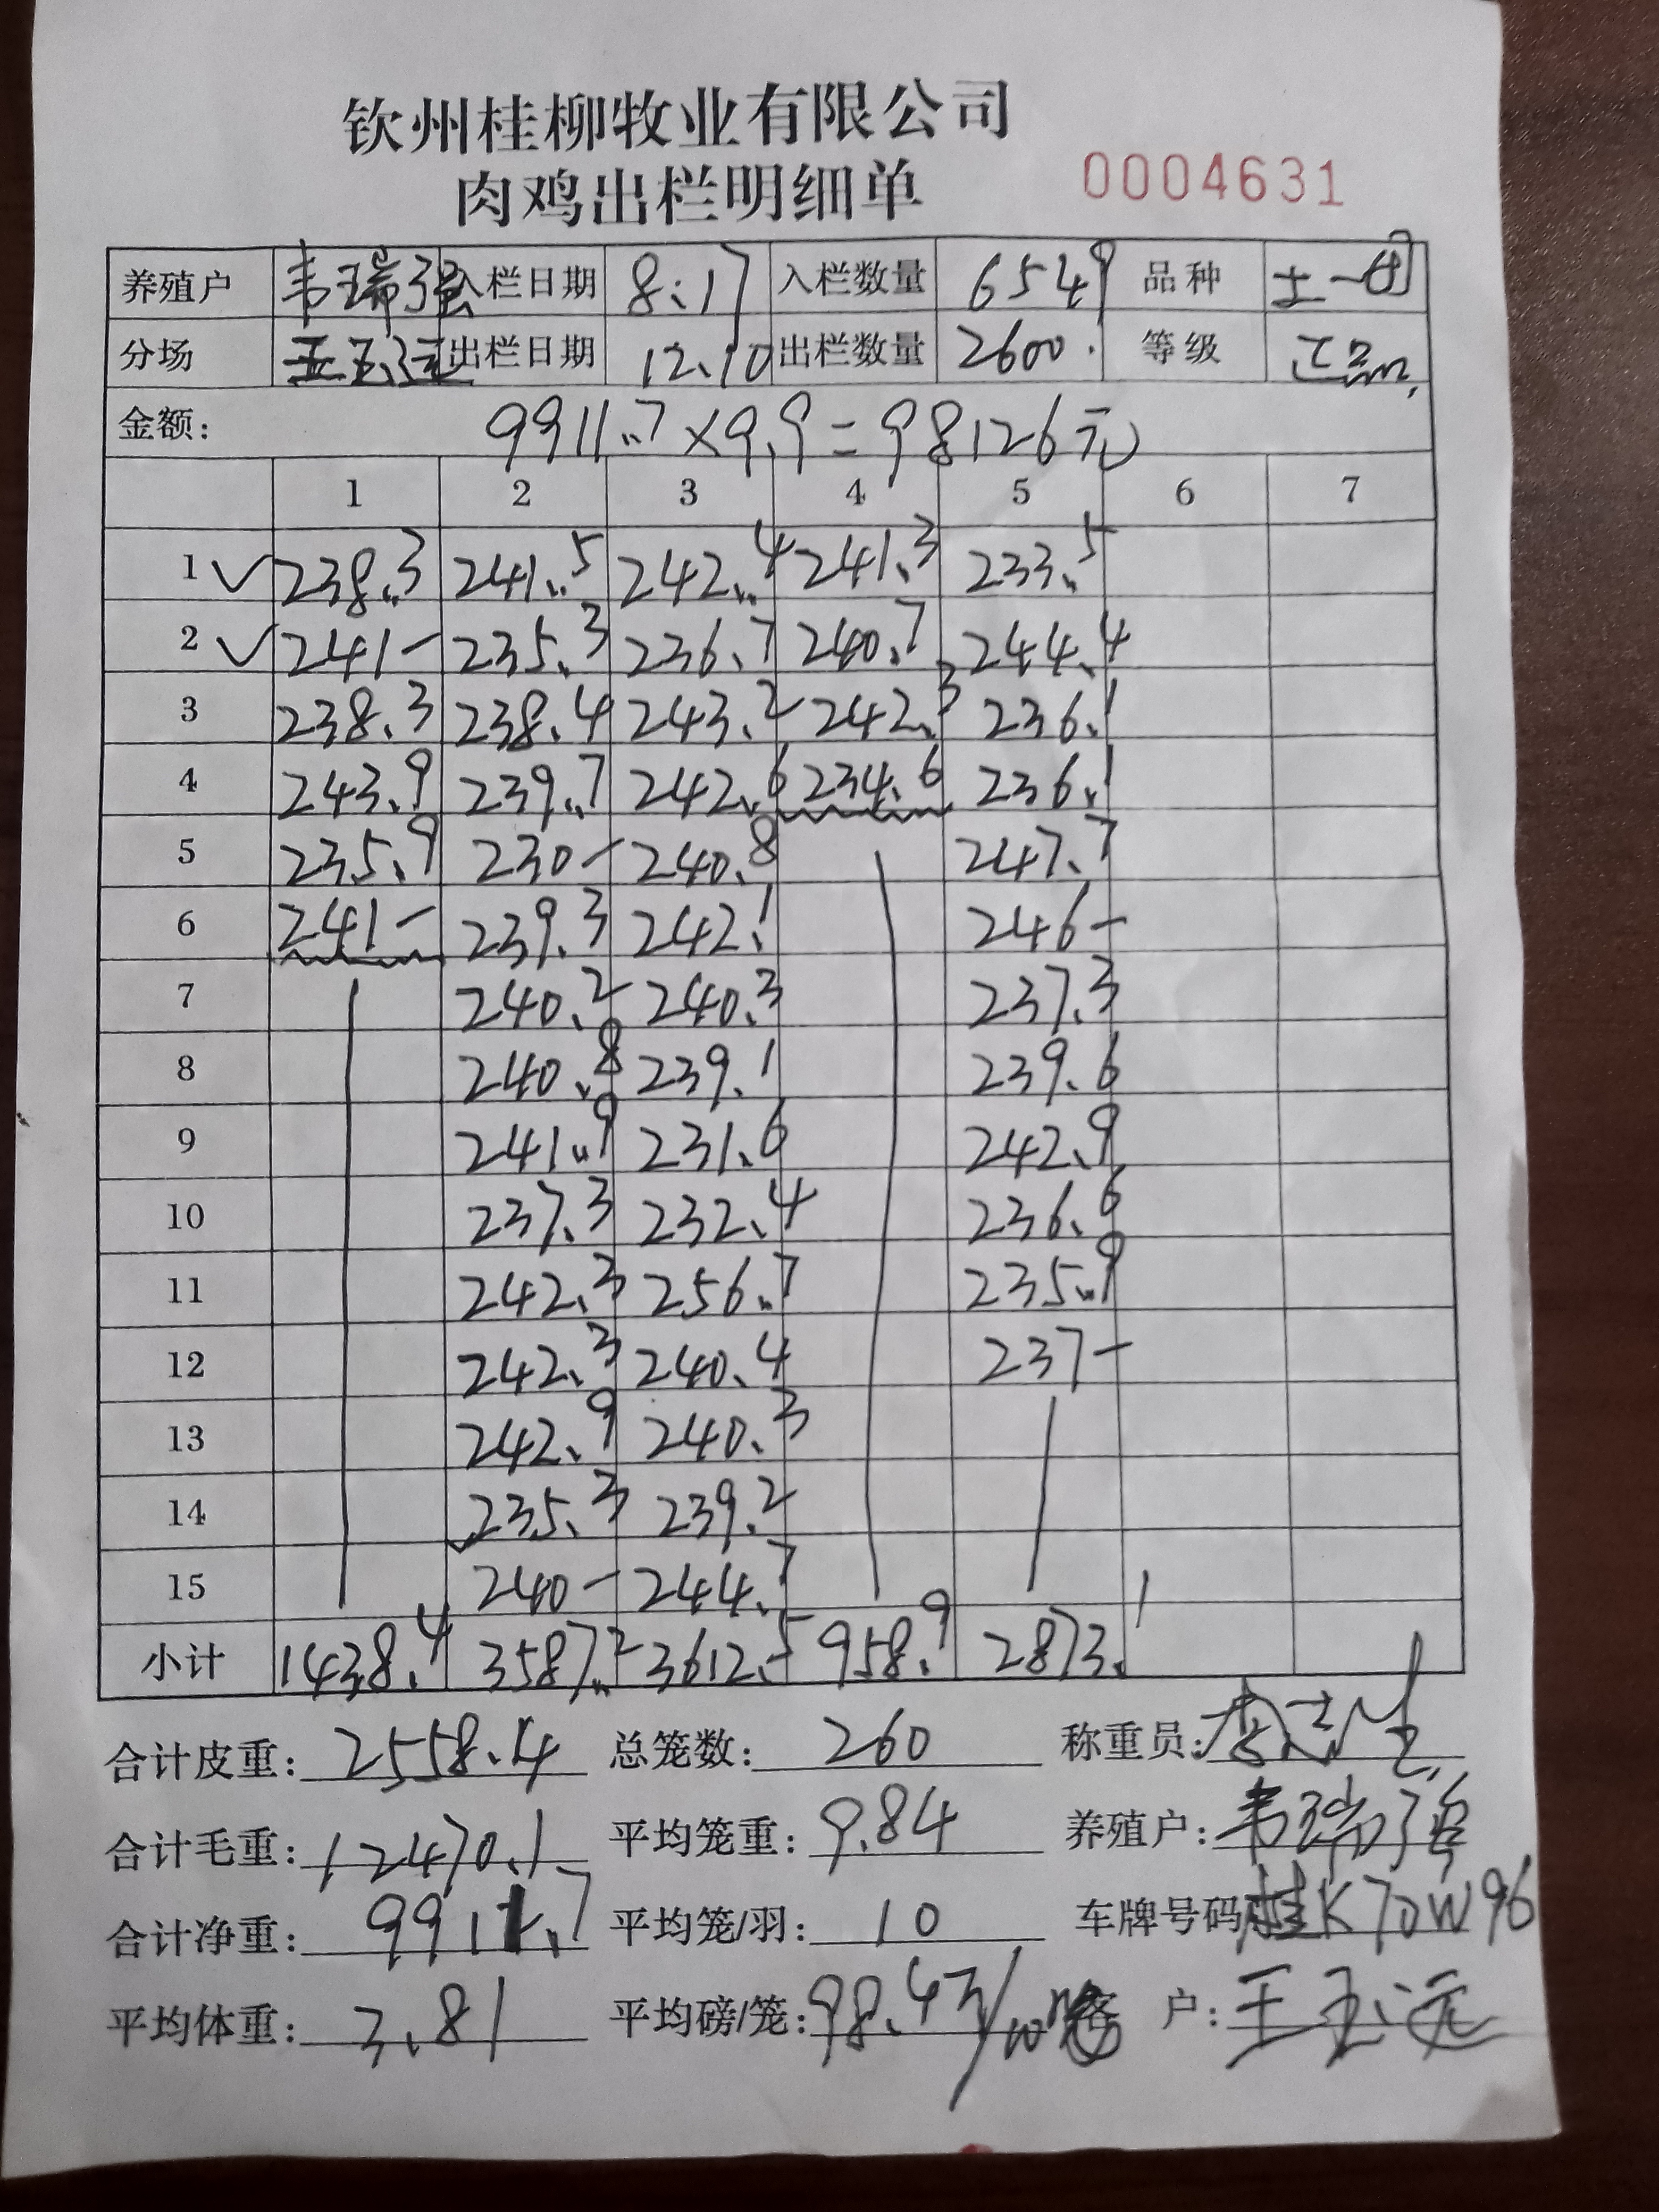 钦州桂柳牧业有限公司
肉鸡出栏明细单 0004631
养殖户 韦瑞强 入栏日期 8.17 入栏数量 6549 品种 土一
分场 王玉远 出栏日期 12.10 出栏数量 2600. 等级 正品
金额: 9911.7×9.9=98126元
1 2 3 4 5 6 7
1 ✓ 238.3 241.5 242.4 241.3 233.5
2 ✓ 241- 235.3 236.7 240.7 244.4
3 238.3 238.4 243.2 242.3 236.1
4 243.9 239.7 242.6 234.6 236.1
5 235.9 230- 240.8 247.7
6 241- 239.3 242.1 246-
7 240.2 240.3 237.3
8 240.8 239.1 239.6
9 241.9 231.6 242.9
10 237.3 232.4 236.6
11 242.3 256.7 235.9
12 242.3 240.4 237-
13 242.9 240.3
14 235.3 239.2
15 240- 244.7
小计 1438.4 3587.2 3612.5 958.9 2873.1
合计皮重: 2558.4 总笼数: 260 称重员:
合计毛重: 12470.1 平均笼重: 9.84 养殖户: 韦瑞强
合计净重: 9911.7 平均笼/羽: 10 车牌号码 桂K70W96
平均体重: 3.81 平均磅/笼: 98.4 客 户: 王玉远